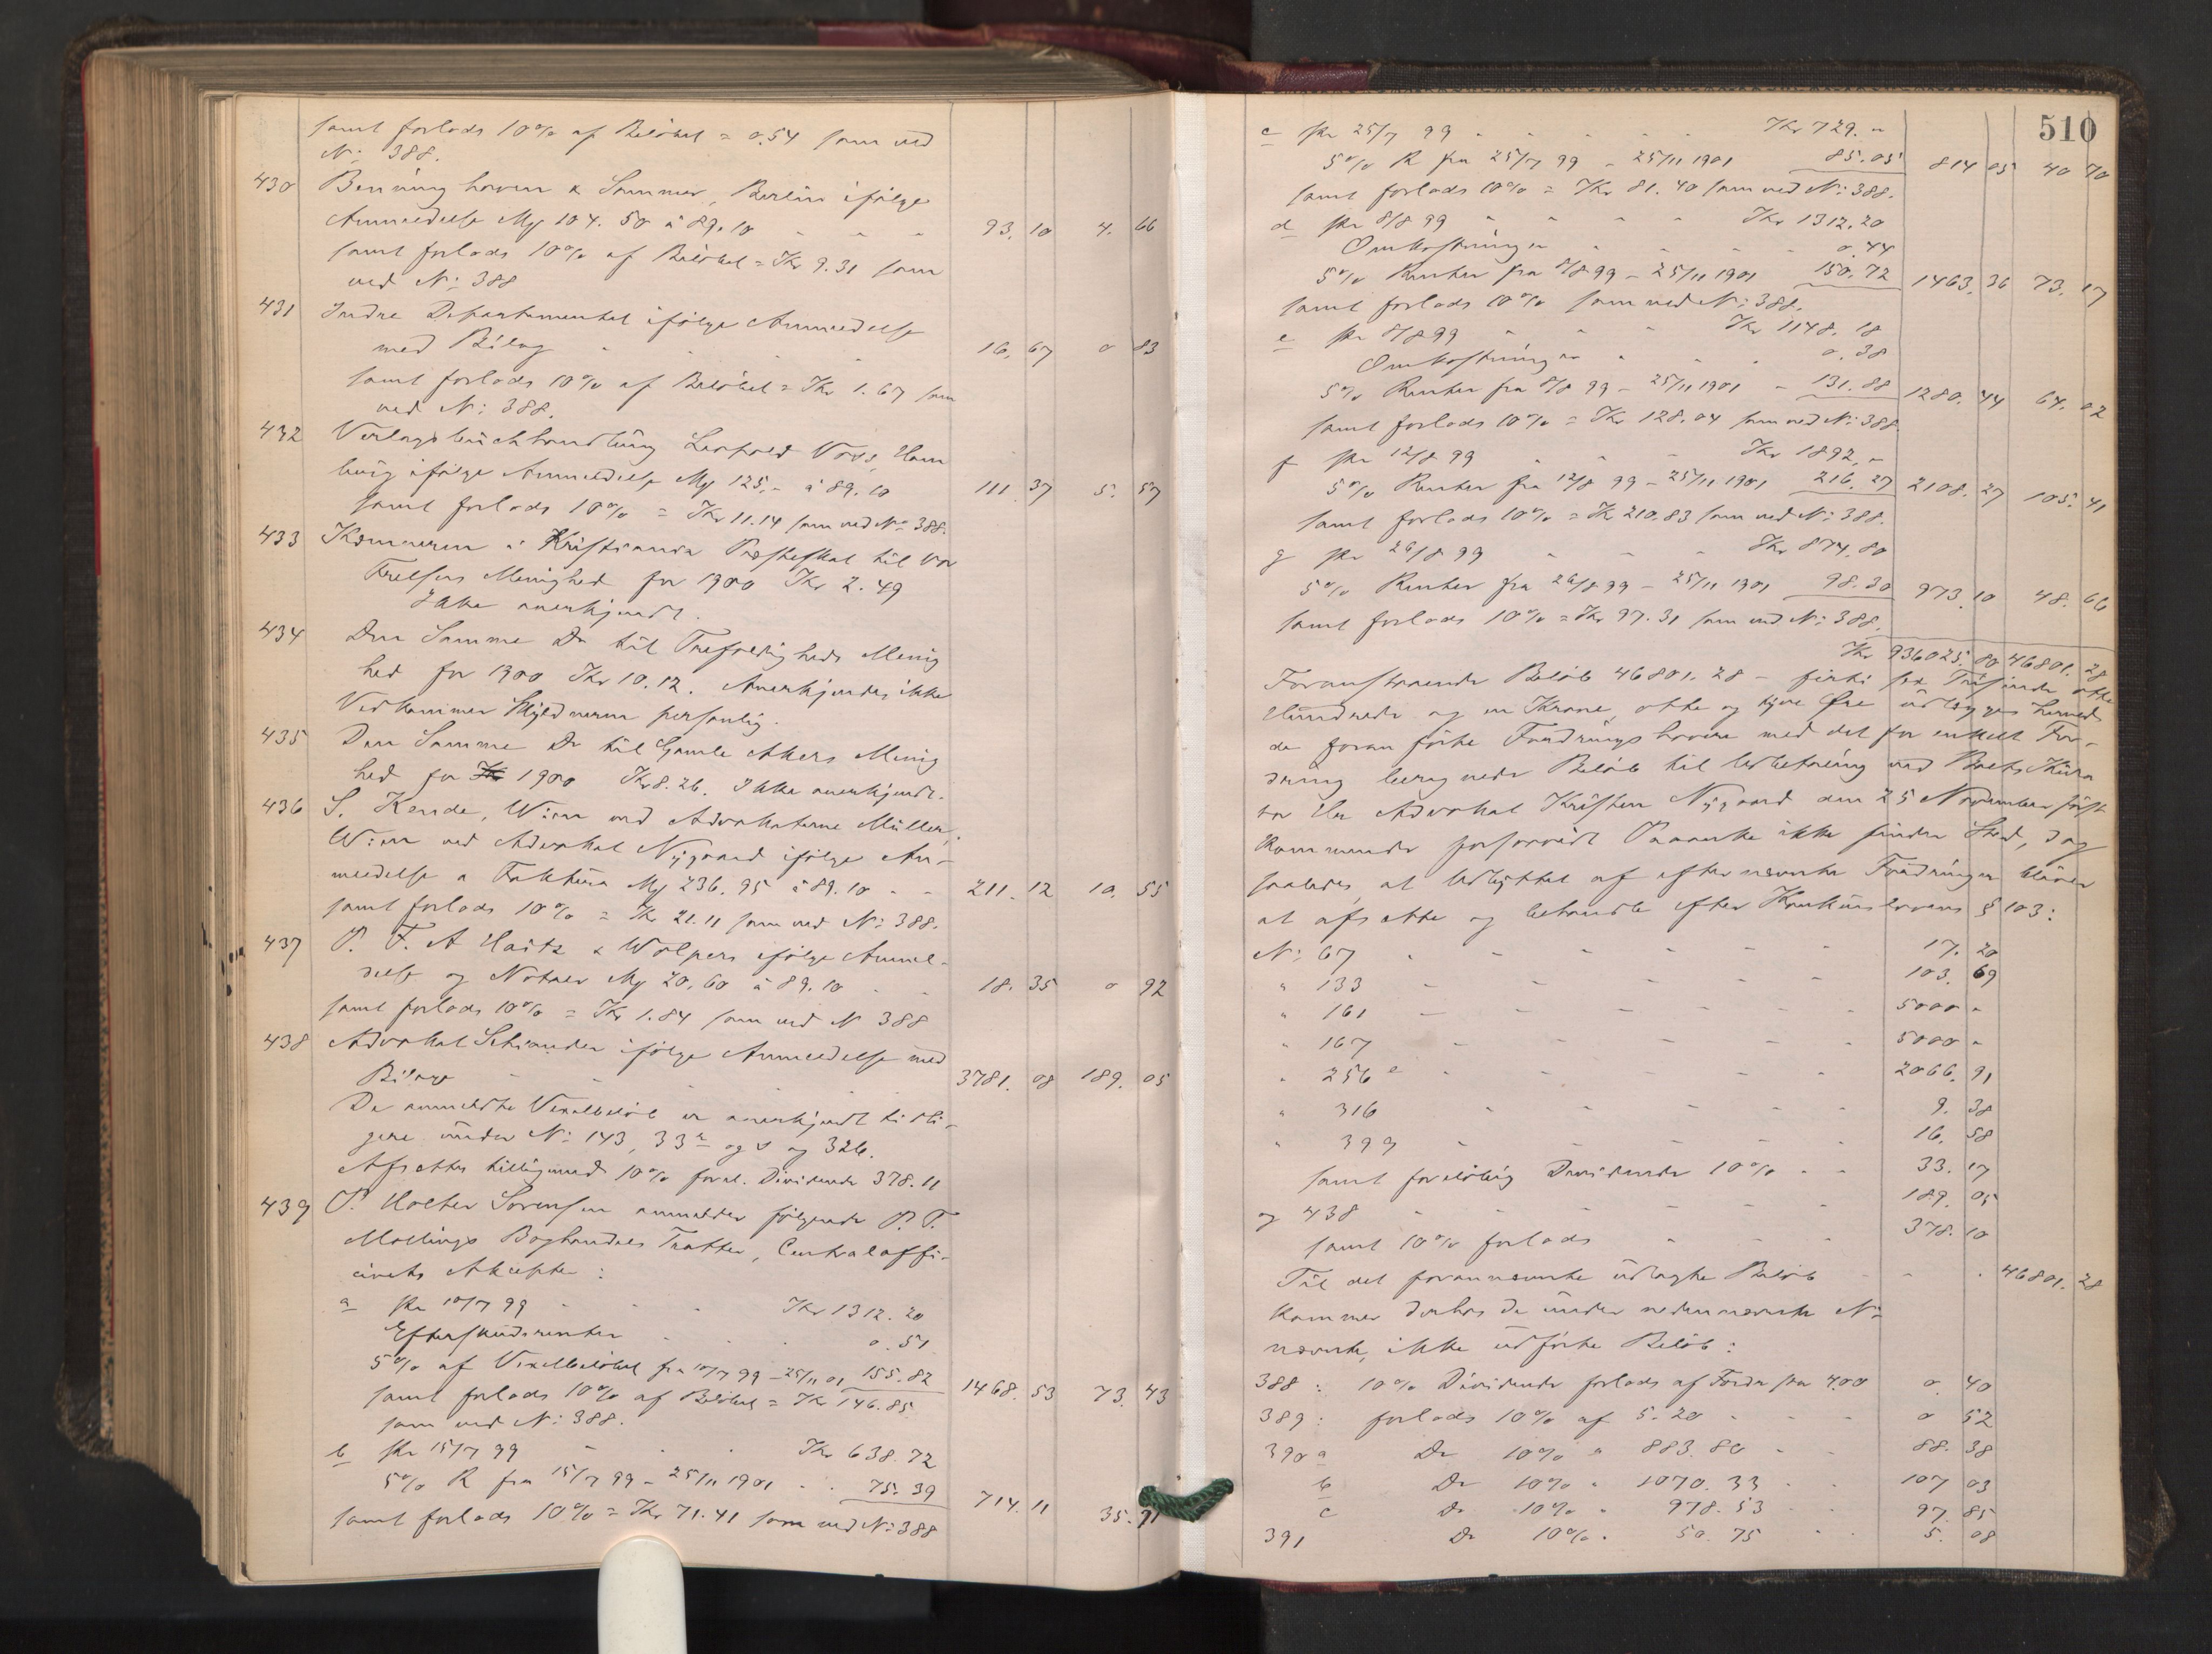 samt forlods 10% af Beløbet = 0.54 som ved
N: 388.
430 Benninghoven & Sommer, Berlin ifølge
Anmeldelse Mg 104. 50 à 89.10 - - - 93. 10 4. 66
samt forlods 10% af Beløbet = Kr 9.31 som
ved N: 388
431 Indre Departementet ifølge Anmeldelse
med Bilag - - - 16. 67 0 83
samt forlods 10% af Beløbet = Kr 1.67 som
ved N: 388.
432 Verlagsbuchhandlung Leopold Voss, Ham
burg ifølge Anmeldelse Mg 125,- à 89.10 111. 37 5. 57
samt forlods 10% = Kr 11.14 som ved No 388.
433 Kæmneren i Kristiania Præsteskat til Vor
Frelsers Menighed for 1900 Kr 2.49
Ikke anerkjendt.
434 Den Samme Do til Trefoldigheds Menig
hed for 1900 Kr 10.12. Anerkjendes ikke
Vedkommer Skyldneren personlig.
435 Den Samme Do til Gamle Akers Menig
hed for Kr 1900 Kr 8.26. Ikke anerkjendt.
436 S. Kende, Wien ved Advokaterne Müller,
Wien ved Advokat Nygaard ifølge An-
meldelse a Faktura Mg 236. 95 à 89.10 - - 211. 12 10. 55
samt forlods 10% = Kr 21.11 som ved N: 388.
437 P. F. A Haitz & Wolpers ifølge Anmel-
delse og Notaer Mg 20.60 à 89.10 - - 18. 35 0 92
samt forlods 10% = Kr 1.84 som ved N 388
438 Advokat Schiander ifølge Anmeldelse med
Bilage - - - 3781. 08 189. 05
De anmeldte Vexelbeløb er anerkjendt tidli-
gere under N: 143, 33 a og s og 326.
Afsættes tilligemed 10% forel. Dividende 378.11
439 P. Holter Sørensen anmelder følgende P. T.
Mallings Boghandels Tratter, Centraloffi-
cinets Aksepter:
a pr 10/7 99 - - - Kr 1312.20
Efterskudsrenter - - - 0.51
5% af Vexelbeløbet fra 10/7 99 - 25/11 01 155.82 1468. 53 73. 43
samt forlods 10% af Beløbet = Kr 146.85
som ved N: 388.
b pr 15/7 99 - - - Kr 638.72
5% R fra 15/7 99 - 25/11 1901 - - 75.39 714. 11 35. 71
samt forlods 10% = Kr 71.41 som ved N: 388
510
c pr 25/7 99 - - - - Kr 729. "
5% R fra 25/7 99 - 25/11 1901 85.05 814 05 40 70
samt forlods 10% = Kr 81.40 som ved N: 388.
d pr 8/8 99 - - - - Kr 1312.20
Omkostninger - - - - 0.44
5% Renter fra 8/8 99 - 25/11 1901 150.72 1463. 36 73. 17
samt forlods 10% som ved N: 388.
e pr 8/8 99 - - - Kr 1148.18
Omkostninger - - - 0.38
5% Renter fra 8/8 99 - 25/11 1901 - 131.88 1280. 44 64. 02
samt forlods 10% = Kr 128.04 som ved N: 388
f pr 12/8 99 - - - Kr 1892,-
5% Renter fra 12/8 99 - 25/11 1901 216.27 2108. 27 105. 41
samt forlods 10% = Kr 210.83 som ved N: 388.
g pr 26/8 99 - - - Kr 874.80
5% Renter fra 26/8 99 - 25/11 1901 98.30 973. 10 48. 66
samt forlods 10% = Kr 97.31 som ved N: 388.
Kr 936025. 80 46801. 28
Foranstaaende Beløb 46801.28 - firti sex Tusinde otte
Hundrede og en Krone, otte og tyve Øre udlægges herved
de foran førte Fordringshavere med det for enkelt For-
dring beregnede Beløb til Udbetaling ved Boets Kura
tor Hr Advokat Kristen Nygaard den 25 November først
kommende forsaavidt Paaanke ikke finder Sted, dog
saaledes, at Udbyttet af efternævnte Fordringer bliver
at afsætte og behandle efter Konkurslovens § 103:
N: 67 - - - - - 17. 20
" 133 - - - - - 103. 69
" 161 - - - - - 5000 "
" 167 - - - - - 5000 "
" 256 e - - - - - 2066. 91
" 316 - - - - - 9. 38
" 399 - - - - - 16. 58
samt foreløbig Dividende 10% - - 33. 17
og 438 - - - - - 189. 05
samt 10% forlods - - - 378. 10
Til det forannævnte udlagte Beløb - - - 46801. 28
kommer derhos de under nedennævnte N:
nævnte, ikke udførte Beløb:
388: 10% Dividende forlods af Fordr fra 4.00 0. 40
389: forlods 10% af 5.20 - - - 0 52
390 a Do 10% " 883.80 - - 88. 38
b Do 10% " 1070.33 - - 107 03
c Do 10% " 978.53 - - 97. 85
391 Do 10% " 50.75 - - 5. 08